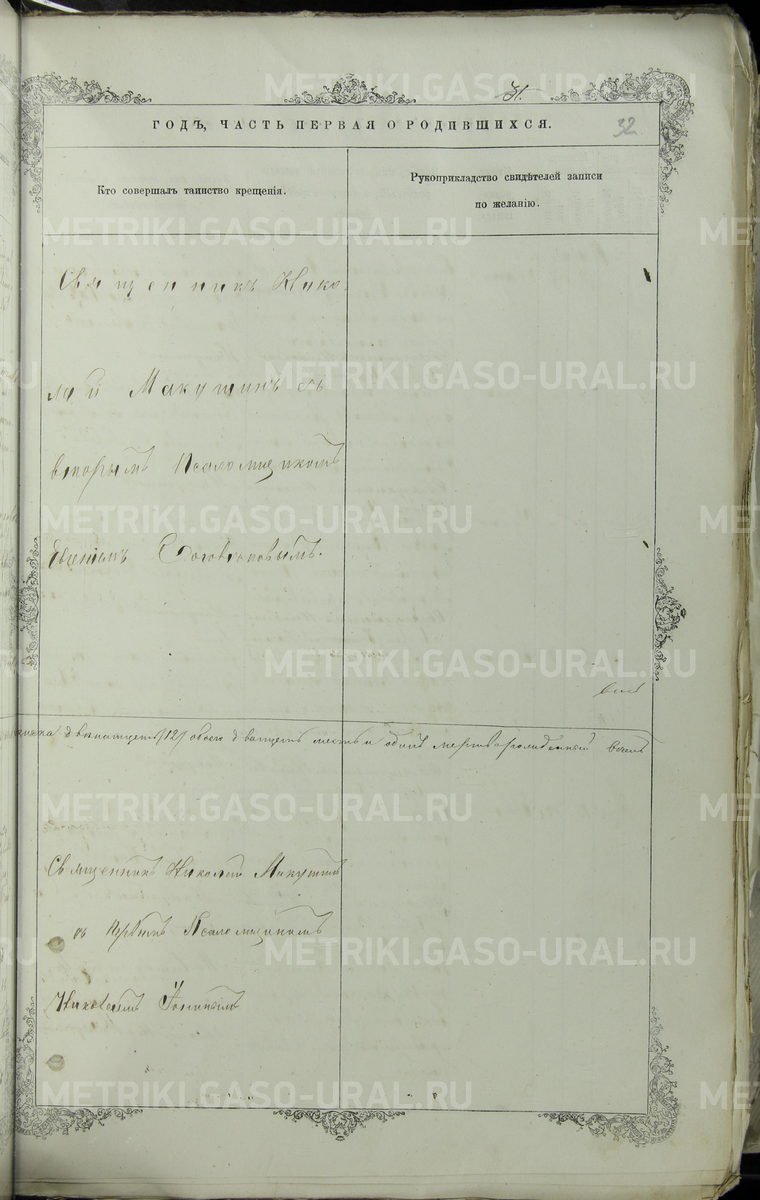 METRIKI.GASO-URAL.RU
31.
ГОДЪ, ЧАСТЬ ПЕРВАЯ О РОДИВШИХСЯ.
32
Кто совершалъ таинство крещенія.
Рукоприкладство свидѣтелей записи
по желанію.
METRIKI.GASO-URAL.RU METRI
Священникъ Нико
METRIKI.GASO-URAL.RU
лай Макушинъ съ
вторымъ Псаломщикомъ
METRIKI.GASO-URAL.RU METRI
Евгеніемъ
METRIKI.GASO-URAL.RU
двенатцеть /12/ обоего дватцеть шесть и одинъ мертворожденный
METRIKI.GASO-URAL.RU METRI
Священникъ Николай Макушинъ
съ Псаломщикомъ
METRIKI.GASO-URAL.RU
METRIKI.GASO-URAL.RU METRI